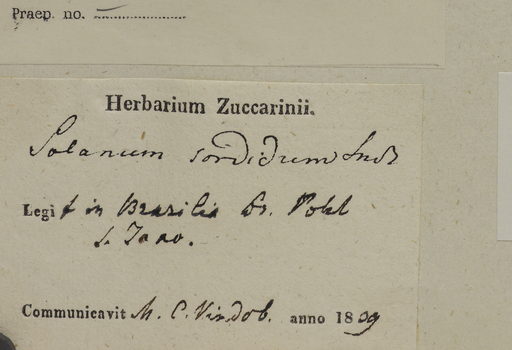 Praep. no.
Herbarium Zuccarinii.
Solanum sordidum Sndt
Legit in Brasilia Dr. Pohl
S. Joao.
Communicavit M. C. Vindob. anno 1839